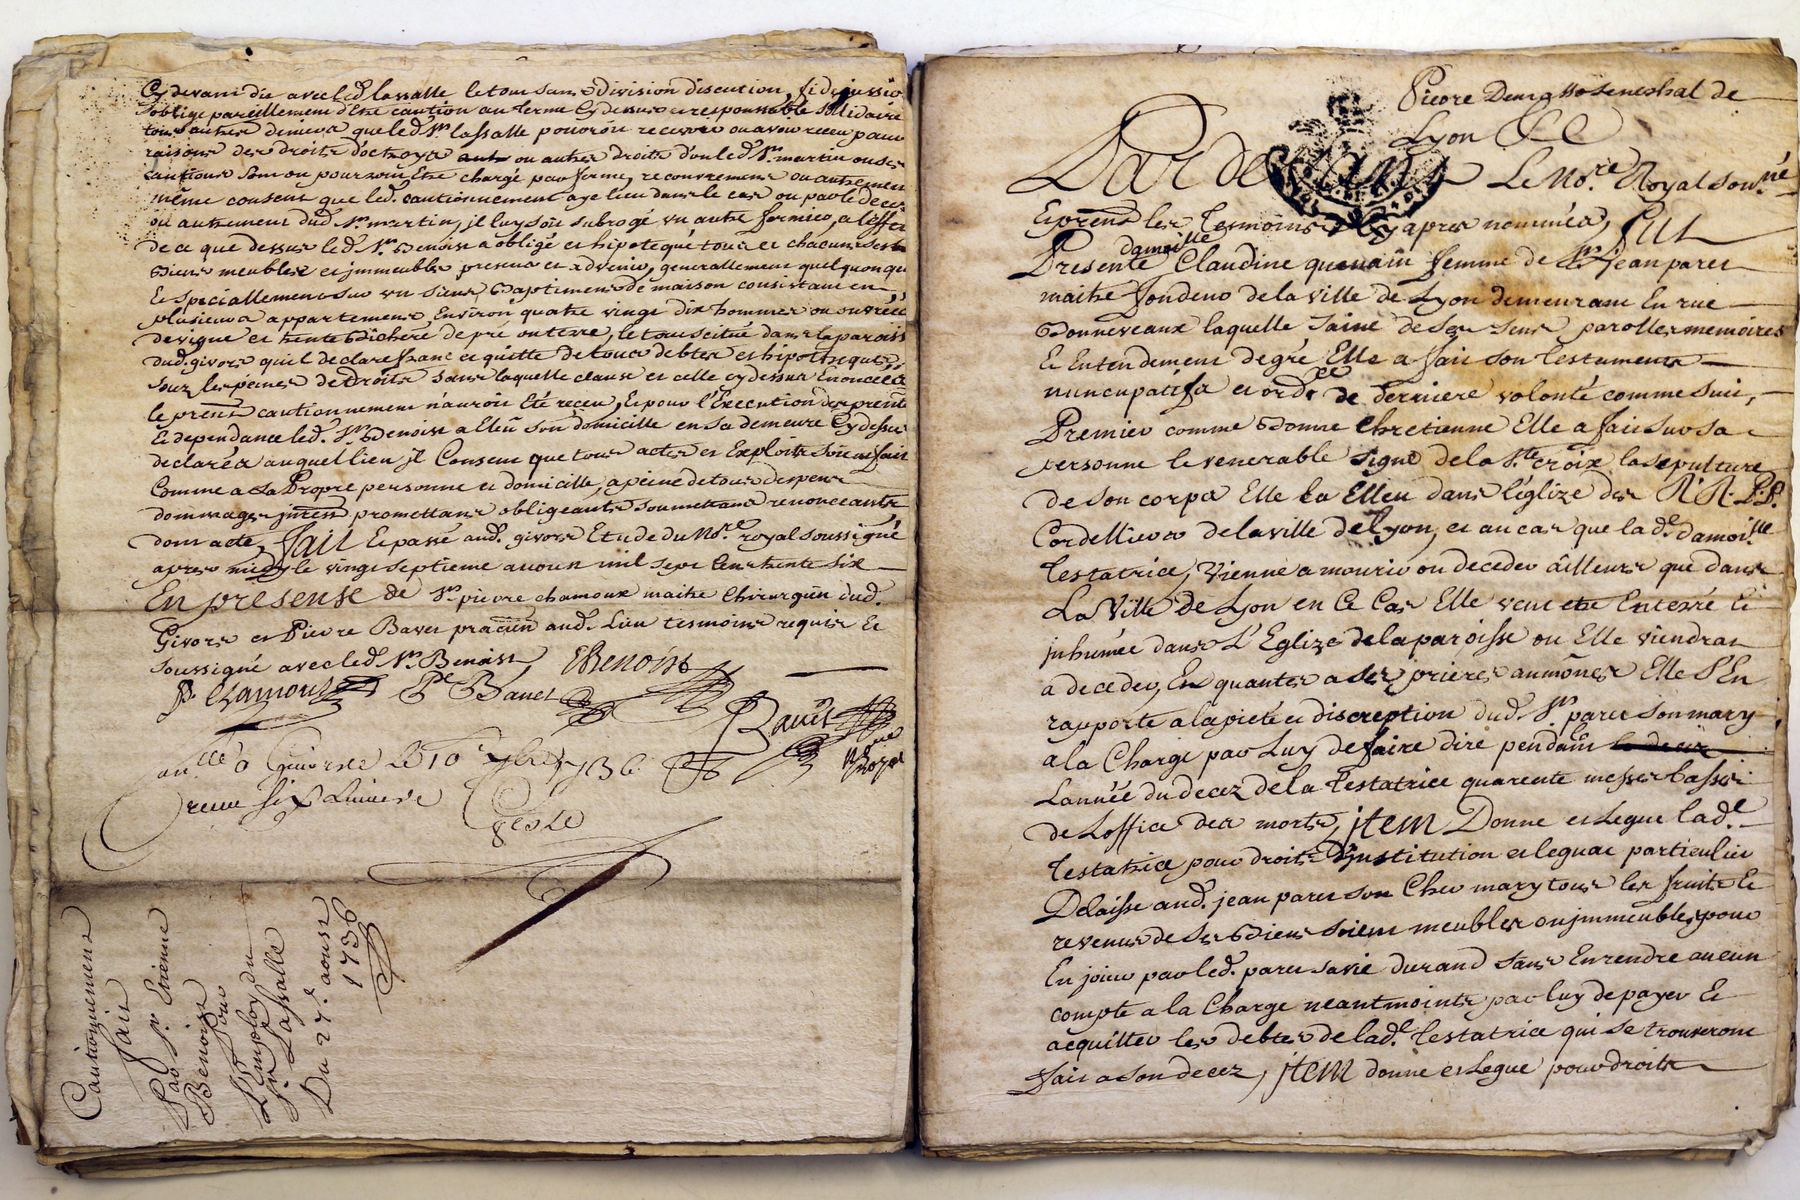 Cy devant dit avec led. lassalle le tout sans division discution, fidejussio
soblige pareillement d'Etre caution au terme cy dessus et responsable solidaire
tous autres deniers que led. Sr. lassalle pouroit recevoir ou avoir receu pour
raisons des droits d'octroys ou autres droits dont led. Sr. martin ou ses
cautions sont ou pourront Etre chargé par ferme, recouvrement ou autrement
même consent que led. cautionnement aye lieu dans le cas ou par le deces
ou autrement dud. Sr. martin, il luy soit subrogé un autre fermier, a l'effet
de ce que dessus led. Sr. Benoist a obligé et hipotequé tous et chacuns ses
Biens meubles et immeubles presens et advenir, generallement quelquonque
Et specialement sur un sien Baptiment de maison consistant en
plusieurs appartements Environ quatre vingt dix hommes ou ouvrées
de vigne et trente Bicherée de pré ou terre, le tout scitué dans la paroisse
dud. givors quil declare franc et quitte de tous debtes et hipotheques,
souz les peines de droits sans laquelle clause et celle cydessus Enoncée
le present cautionnement n'auroit Eté receu, Et pour l'Execution des presentes
Et dependance led. Sr. Benoist a Eleu son domicille en sa demeure Cydessus
declarée auquel lieu il Consent que tous actes et Exploits soient fait
Comme a sa Propre personne et domicille, a peine de tous depens
dommages promettans obligeants soumettans renonceants
dont acte, fait Et passé aud. givors Etude du Nore. royal soussigné
apres midy le vingt septieme aoust mil sept Cent trente six
En presense de Sr. pierre chamoux maitre Chirurgien dud.
Givors et Pierre Baves praticien aud. Lieu temoins requis Et
soussigné avec led. Sr. Benoist, EBenoist
P. Chamoux Pe Baves
Bavet
Nre Royal
a Givors le 10e 7bre 1736
receu six Livres
Geste
Cautionnement
fait
Par Sr Etienne
Benoist
pour
L'Employ du
Sr. Lassalle
Du 27e. aoust
1736
Pierre senechal de
Lyon &C
Par devant Le Nore. Royal Sousné
Et presens les Tesmoins cy apres nommées, fut
damoille
Presente Claudine quenain femme de Sr. Jean paret
maitre fondeur de la ville de Lyon demeurant En rue
Bonneveaux laquelle saine de ses sens parolles memoires
Et Entendement de gré Elle a fait son testament
nuncupatifs et ordce de derniere volonté comme suit,
Premier comme Bonne Chretienne Elle a fait sur sa
personne le venerable signe de la Ste. croix la sepulture
de son corps Elle la Elleu dans l'églize des R. R. P. P.
Cordelliers de la ville de Lyon, et au cas que lade. damoille
testatrice, Vienne a mourir ou deceder âilleurs que dans
La Ville de Lyon en Ce Cas Elle veut etre Enterré Et
inhumée dans L'Eglize de la paroisse ou Elle viendrat
a deceder, En quantes a ses prieres aumônes Elle S'En
rapporte a la pieté et discreption dud. Sr. paret son mary
a la Charge par Luy de faire dire pendant
L'année du decez de la testatrice quarente messes basses
de L'office des morts, item Donne et Legue lade.
testatrice pour droits d'institution et leguat particulier
Delaissé aud. jean paret son Cher mary tous les fruits Et
revenus de ses Biens soient meubles ou immeubles, pour
En joüir par led. paret sa vie durand sans En rendre aucun
compte a la Charge neantmoints par luy de payer Et
acquitter les debtes de lade. testatrice qui se trouveront
fait a son decez, item donne et Legue pour droits